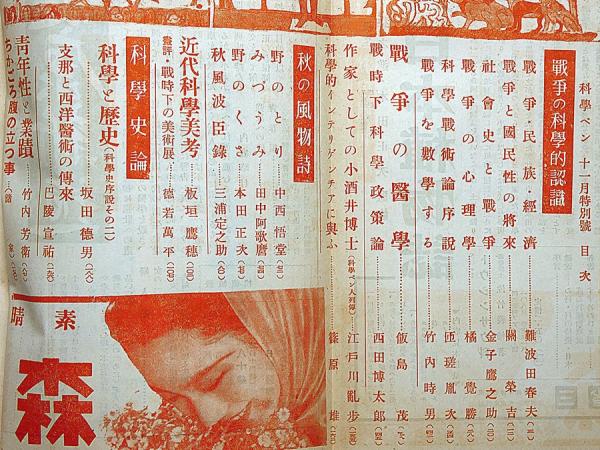 科學ペン 十一月特別號 目次
戰爭の科學的認識
戰爭・民族・經濟 難波田春夫
戰爭と國民性の將來 關榮吉
社會史と戰爭 金子鷹之助
戰爭の心理學 橘覺勝
科學戰術論序說 匝瑳胤次
戰爭を數學する 竹內時男
戰爭の醫學 飯島茂
戰時下科學政策論 西田博太郎
作家としての小酒井博士(科學ペン人列傳) 江戶川亂步
科學的インテリゲンチアに與ふ 篠原雄
秋の風物詩
野のとり 中西悟堂
みづうみ 田中阿歌麿
野のくさ 本田正次
秋風波臣錄 三浦定之助
近代科學美考 板垣鷹穗
畫評・戰時下の美術展 德若萬平
科學史論
科學と歷史(科學史序說その二) 坂田德男
支那と西洋醫術の傳來 巴陵宣祐
靑年性と業蹟 竹內芳衞
ちかごろ腹の立つ事
素晴
森